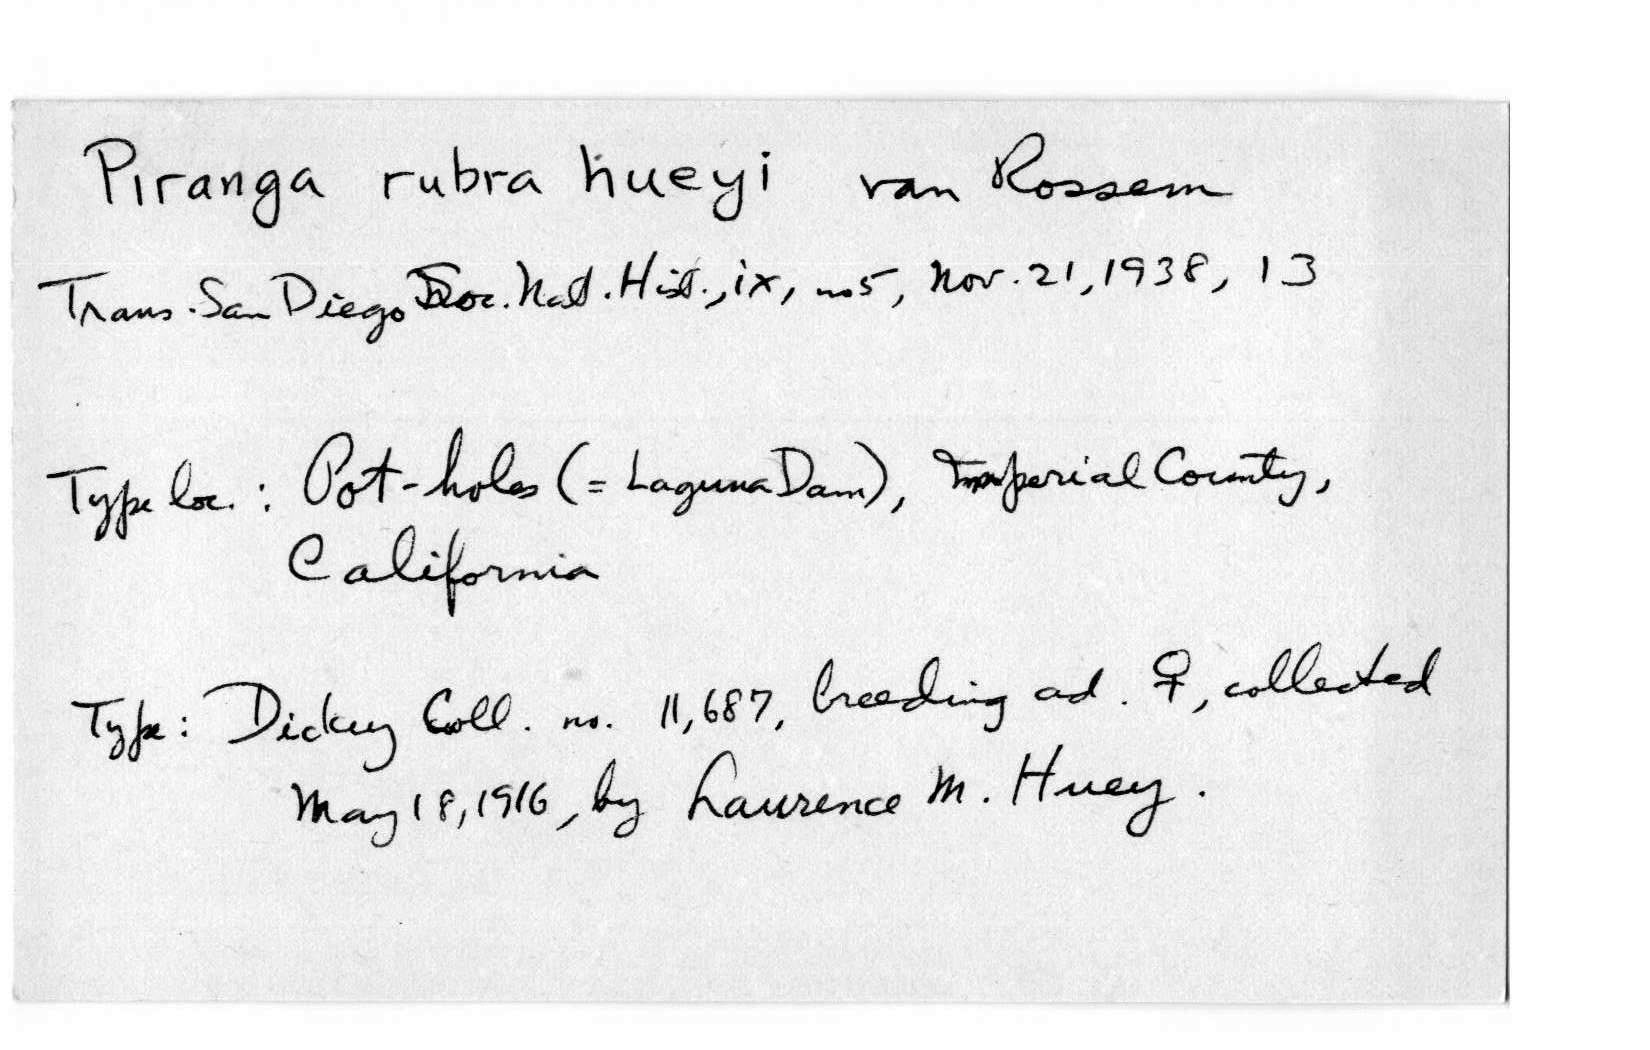 Piranga rubra hueyi van Rossem
Trans. San Diego Soc. Nat. Hist., ix, no 5, Nov. 21, 1938, 13
Type loc. : Pot-holes (= Laguna Dam), Imperial County,
California
Type: Dickey Coll. no. 11,687, breeding ad. ♀, collected
May 18, 1916, by Laurence M. Huey.